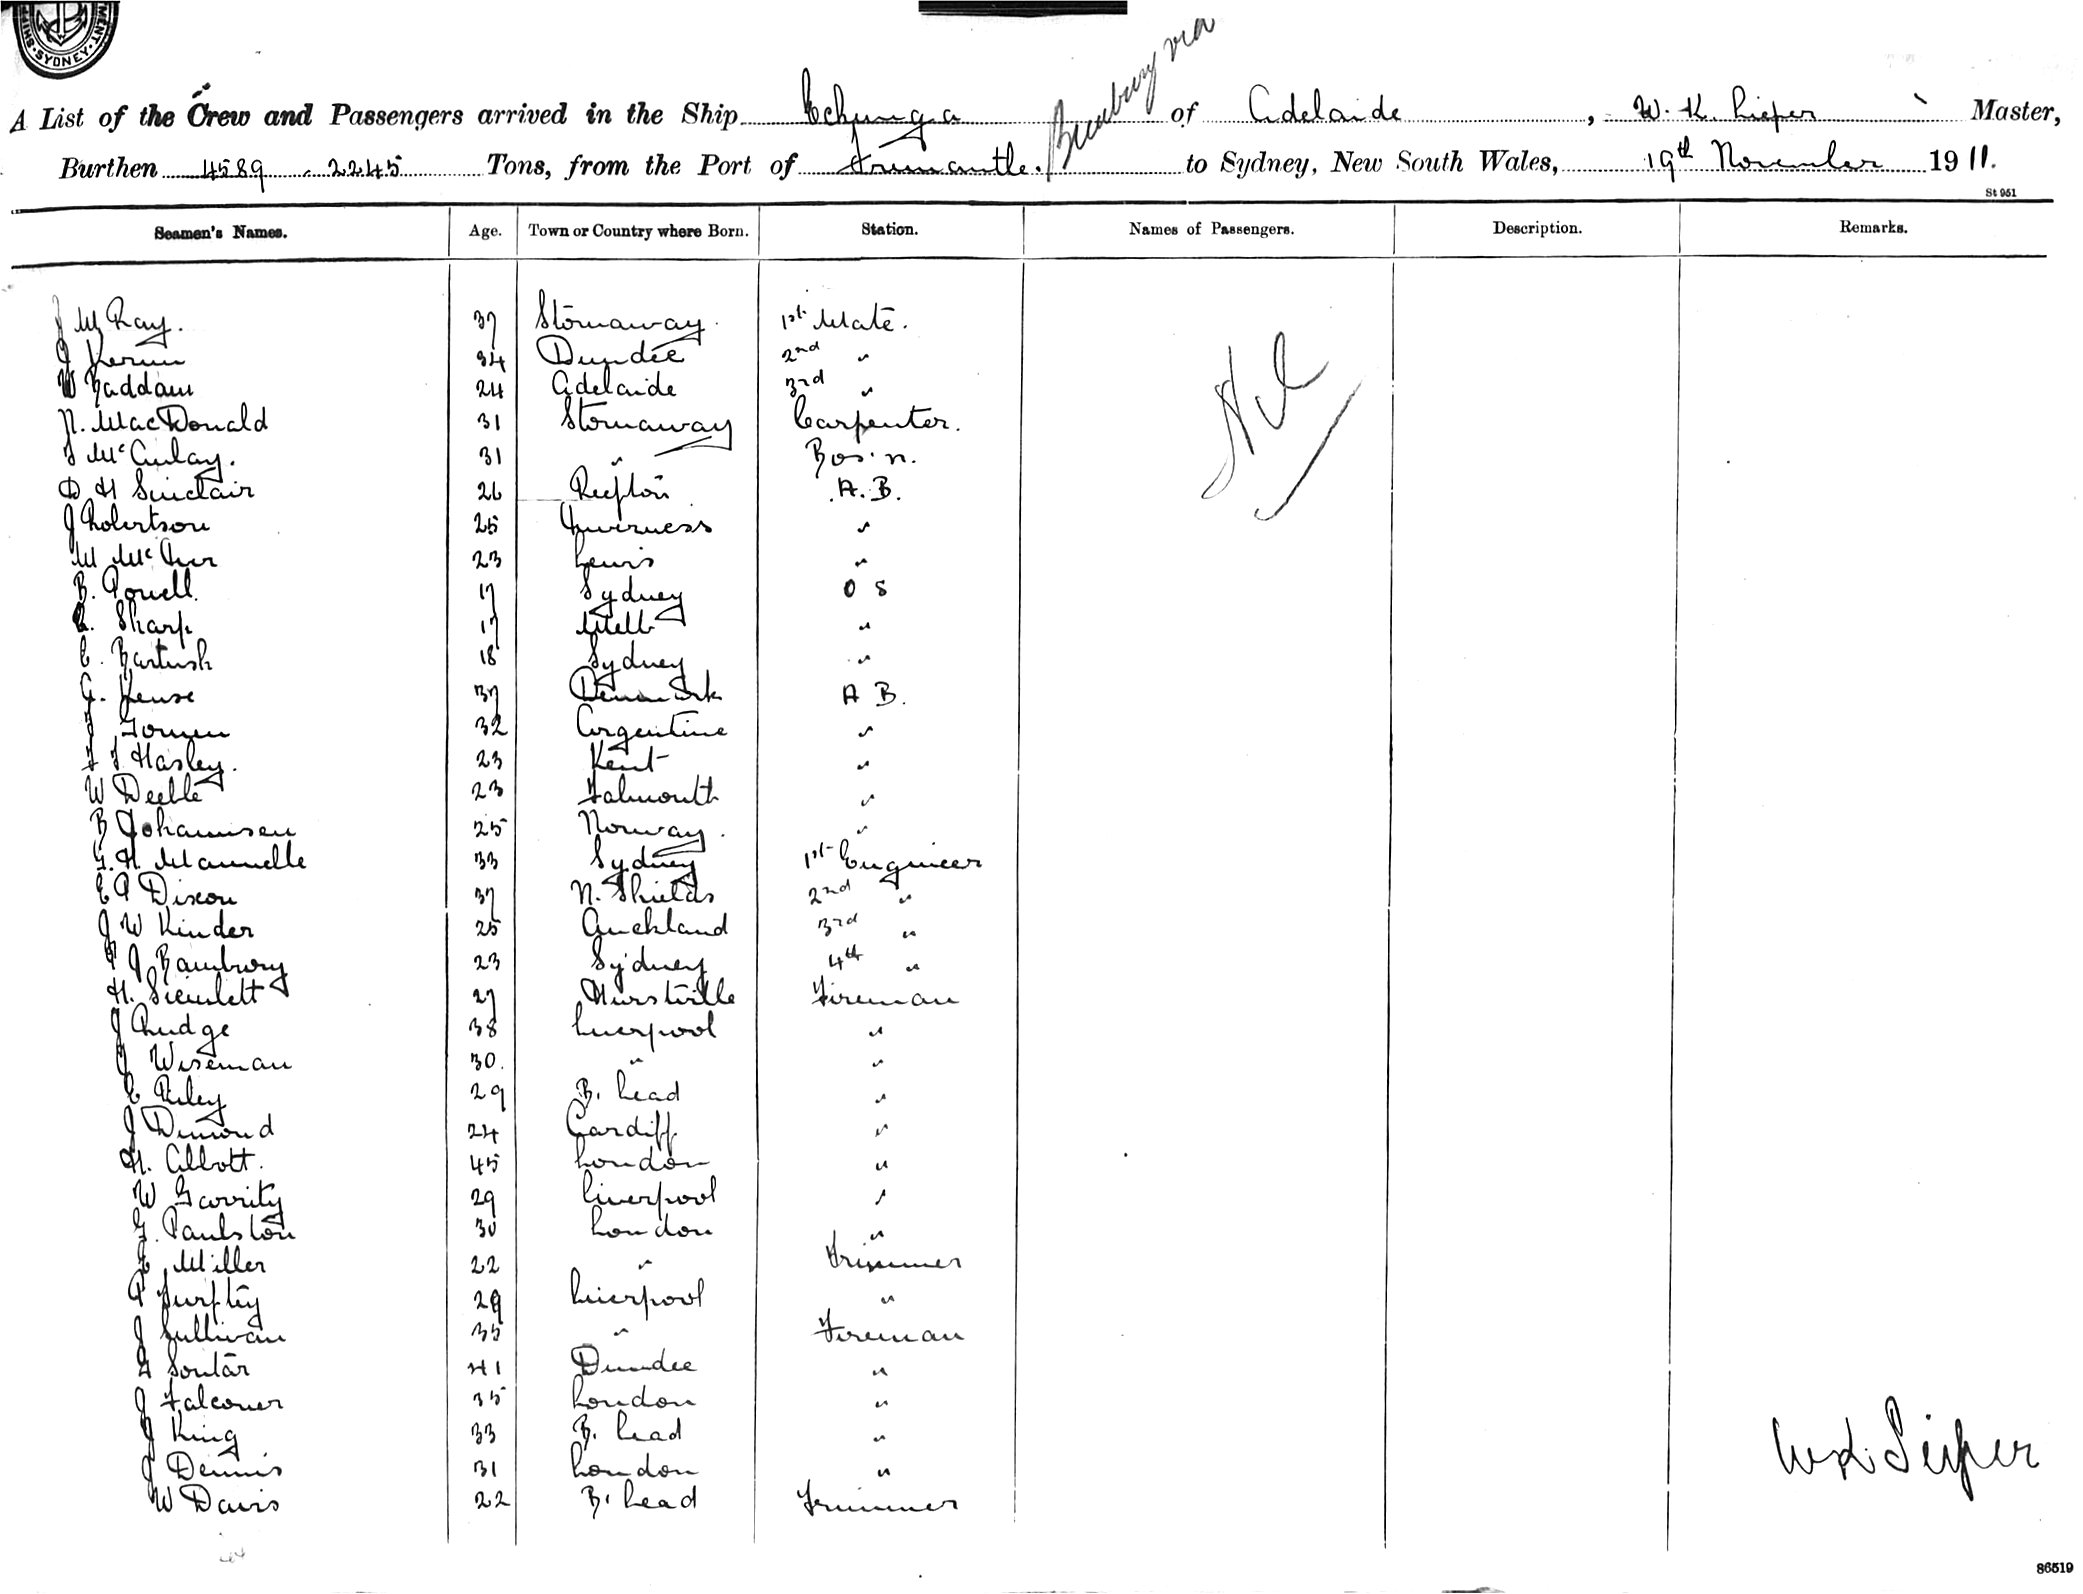 SHIP MENT. SYDNEY.
Bunbury via
A List of the Crew and Passengers arrived in the Ship Echunga of Adelaide, W. K. Lieper Master,
Burthen 4589 - 2245 Tons, from the Port of Fremantle. to Sydney, New South Wales, 19th November 1911.
St 951
Seamen's Names. Age. Town or Country where Born. Station. Names of Passengers. Description. Remarks.
J McRay. 37 Stornaway. 1st Mate. Nil
J 34 Dundee 2nd "
W Haddam 24 Adelaide 3rd "
N. MacDonald 31 Stornaway Carpenter.
J McAulay. 31 " Bos'n.
D H Sinclair 26 Reefton A.B.
J Robertson 25 Inverness "
M McIver 23 Lewis "
B. Powell. 17 Sydney O S
Sharp 17 Melb "
E. Bartush 18 Sydney "
Jense 37 Denmark A B.
32 Argentine "
J Hasley. 23 Kent "
W Deeble 23 Falmouth "
B Johannsen 25 Norway. "
G. H. Mannelle 33 Sydney 1st Engineer
E A Dixon 37 N. Shields 2nd "
J W Kinder 25 Auckland 3rd "
J Bambury 23 Sydney 4th "
H. 27 Hurstville Fireman
J Rudge 38 Liverpool "
J Wiseman 30. " "
E Riley 29 B. head "
J Dimond 24 Cardiff "
H. Abbott. 45 London "
W Garrity 29 Liverpool "
G. Paulston 30 London "
E Miller 22 " Trimmer
29 Liverpool "
J Sullivan 35 " Fireman
Soutar 41 Dundee "
J Falconer 35 London "
J King 33 B. head "
J Dennis 31 London "
W Davis 22 B. head Trimmer
W K. Lieper
86519